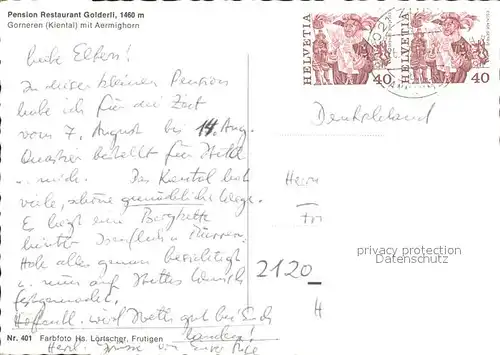 Pension Restaurant Golderli, 1460 m
Gorneren (Kiental) mit Aermighorn
HELVETIA 40
HELVETIA 40
Liebe Eltern!
In dieser kleinen Pension
habe ich für die Zeit
vom 7. August bis 14. Aug.
Quartier bestellt für
u. mich. Das Kiental hat
viele, schöne gemütliche Wege.
Es liegt eine Bergkette
hinter Isenfluh u. Mürren.
Habe alles genau besichtigt
u. nun auf Wunsch
festgemacht.
Hoffentl. wird gut bei Euch
landen!
Herzl. Grüsse von Eurer
Deutschland
Herrn
Fr
2120
H
privacy protection
Datenschutz
Nr. 401 Farbfoto Hs. Lörtscher, Frutigen